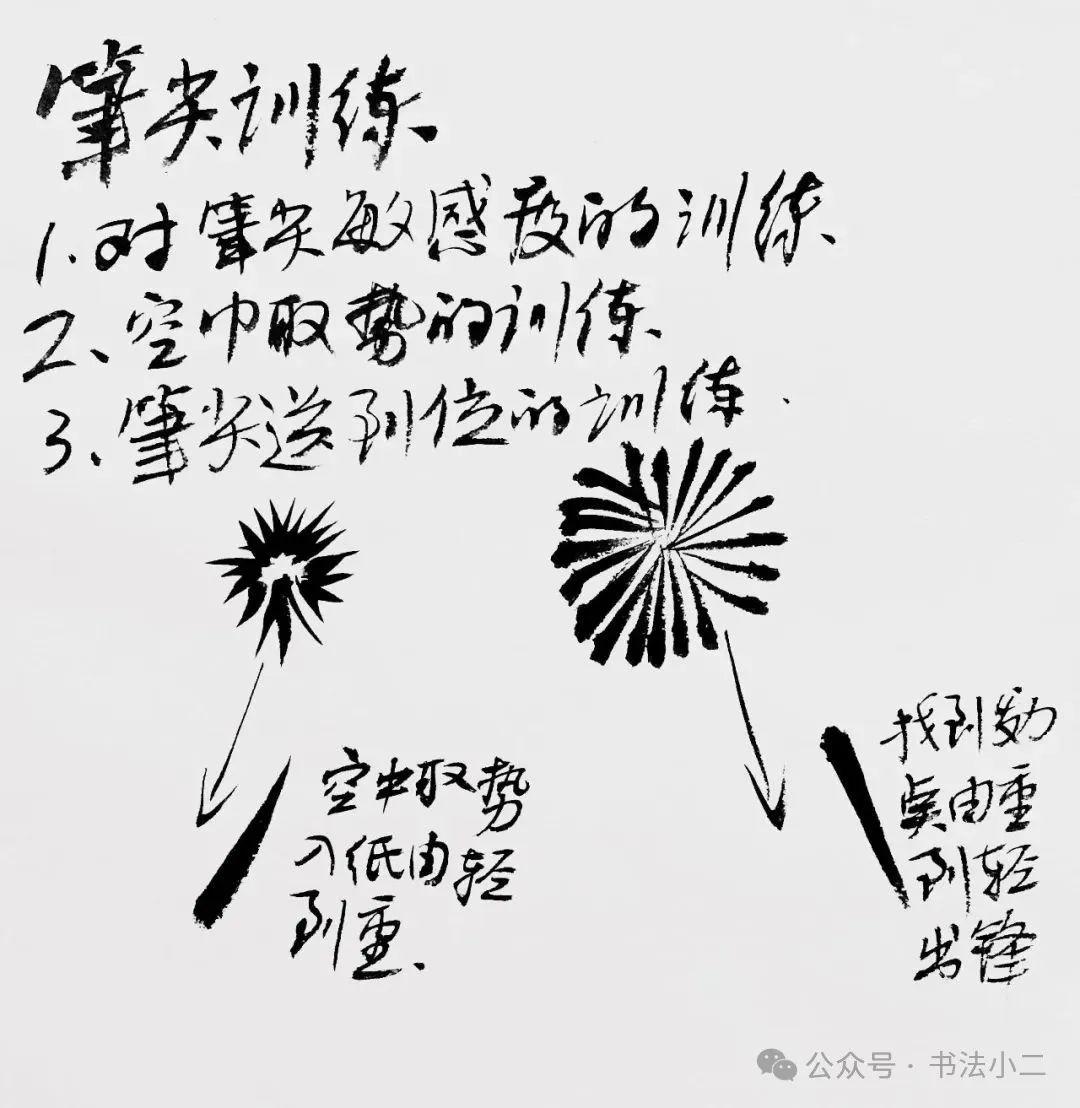 筆尖训练
1.对筆尖敏感度的训练
2、空中取势的训练
3、筆尖送到位的训练.
空中取势
入纸由轻
到重.
找到发力
点由重
到轻
出锋
公众号 · 书法小二